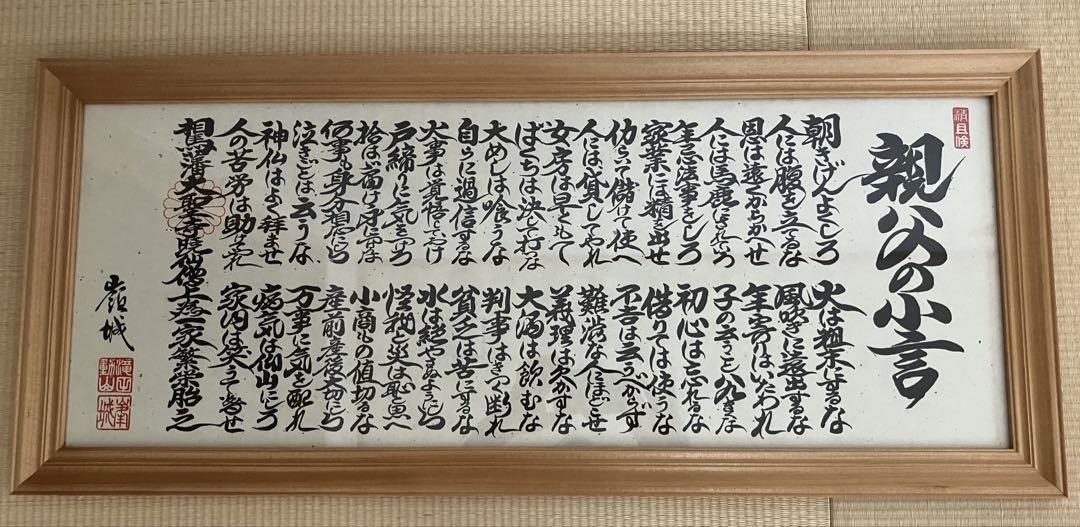 親父の小言
朝きげんよくしろ 火は粗末にするな
人には腹を立てるな 風吹きに遠出するな
恩は遠くからかへせ 年寄りはいたわれ
人には馬鹿にされていろ 子の言うこと八九きくな
年忌法事をしろ 初心は忘れるな
家業には精を出せ 借りては使うな
仂らいて儲けて使へ 不吉は云うべからず
人には貸してやれ 難渋な人にほどこせ
女房は早くもて 義理は欠かすな
ばくちは決して打な 大酒は飲むな
大めしは喰うな 判事はきつく断れ
自らに過信するな 貧乏は苦にするな
火事は覚悟しておけ 水は絶やさぬようにしろ
戸締りに気をつけろ 怪我と災は恥と思へ
拾はば届け身につけるな 小商もの値切るな
何事も身分相応にしろ 産前産後大切にしろ
泣きごとは云うな 万事に気を配れ
神仏はよく拝ませ 病気は仰山にしろ
人の苦労は助けてやれ 家内は笑うて暮せ
相馬藩大聖寺暁仙僧 為家繁栄貼之
嶺城